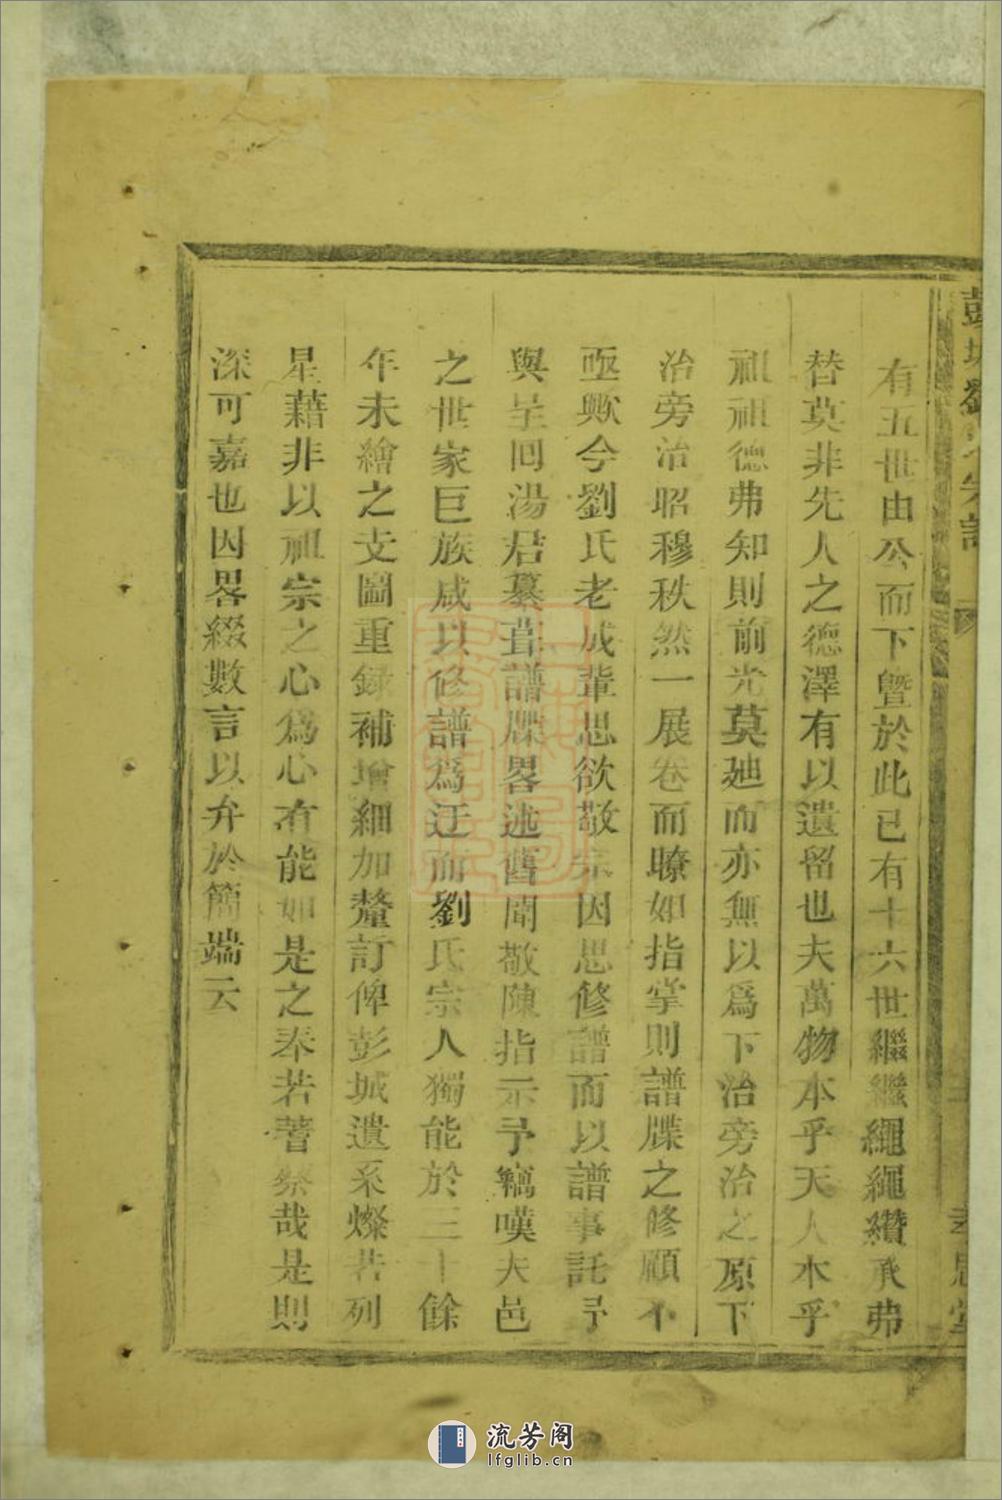 彭城劉氏宗譜
孝思堂
有五世由公而下曁於此已有十六世繼繼繩繩纘承弗
替莫非先人之德澤有以遺留也夫萬物本乎天人本乎
祖祖德弗知則前光莫廸而亦無以爲下治旁治之原下
治旁治昭穆秩然一展卷而瞭如指掌則譜牒之修顧不
亟歟今劉氏老成輩思欲敬宗因思修譜而以譜事託予
與呈囘湯君纂葺譜牒畧述舊聞敬陳指示予竊嘆夫邑
之世家巨族咸以修譜爲迂而劉氏宗人獨能於三十餘
年未繪之支圖重錄補增細加釐訂俾彭城遺系燦若列
星藉非以祖宗之心爲心者能如是之奉若蓍蔡哉是則
深可嘉也因畧綴數言以弁於簡端云
流芳阁
lfglib.cn